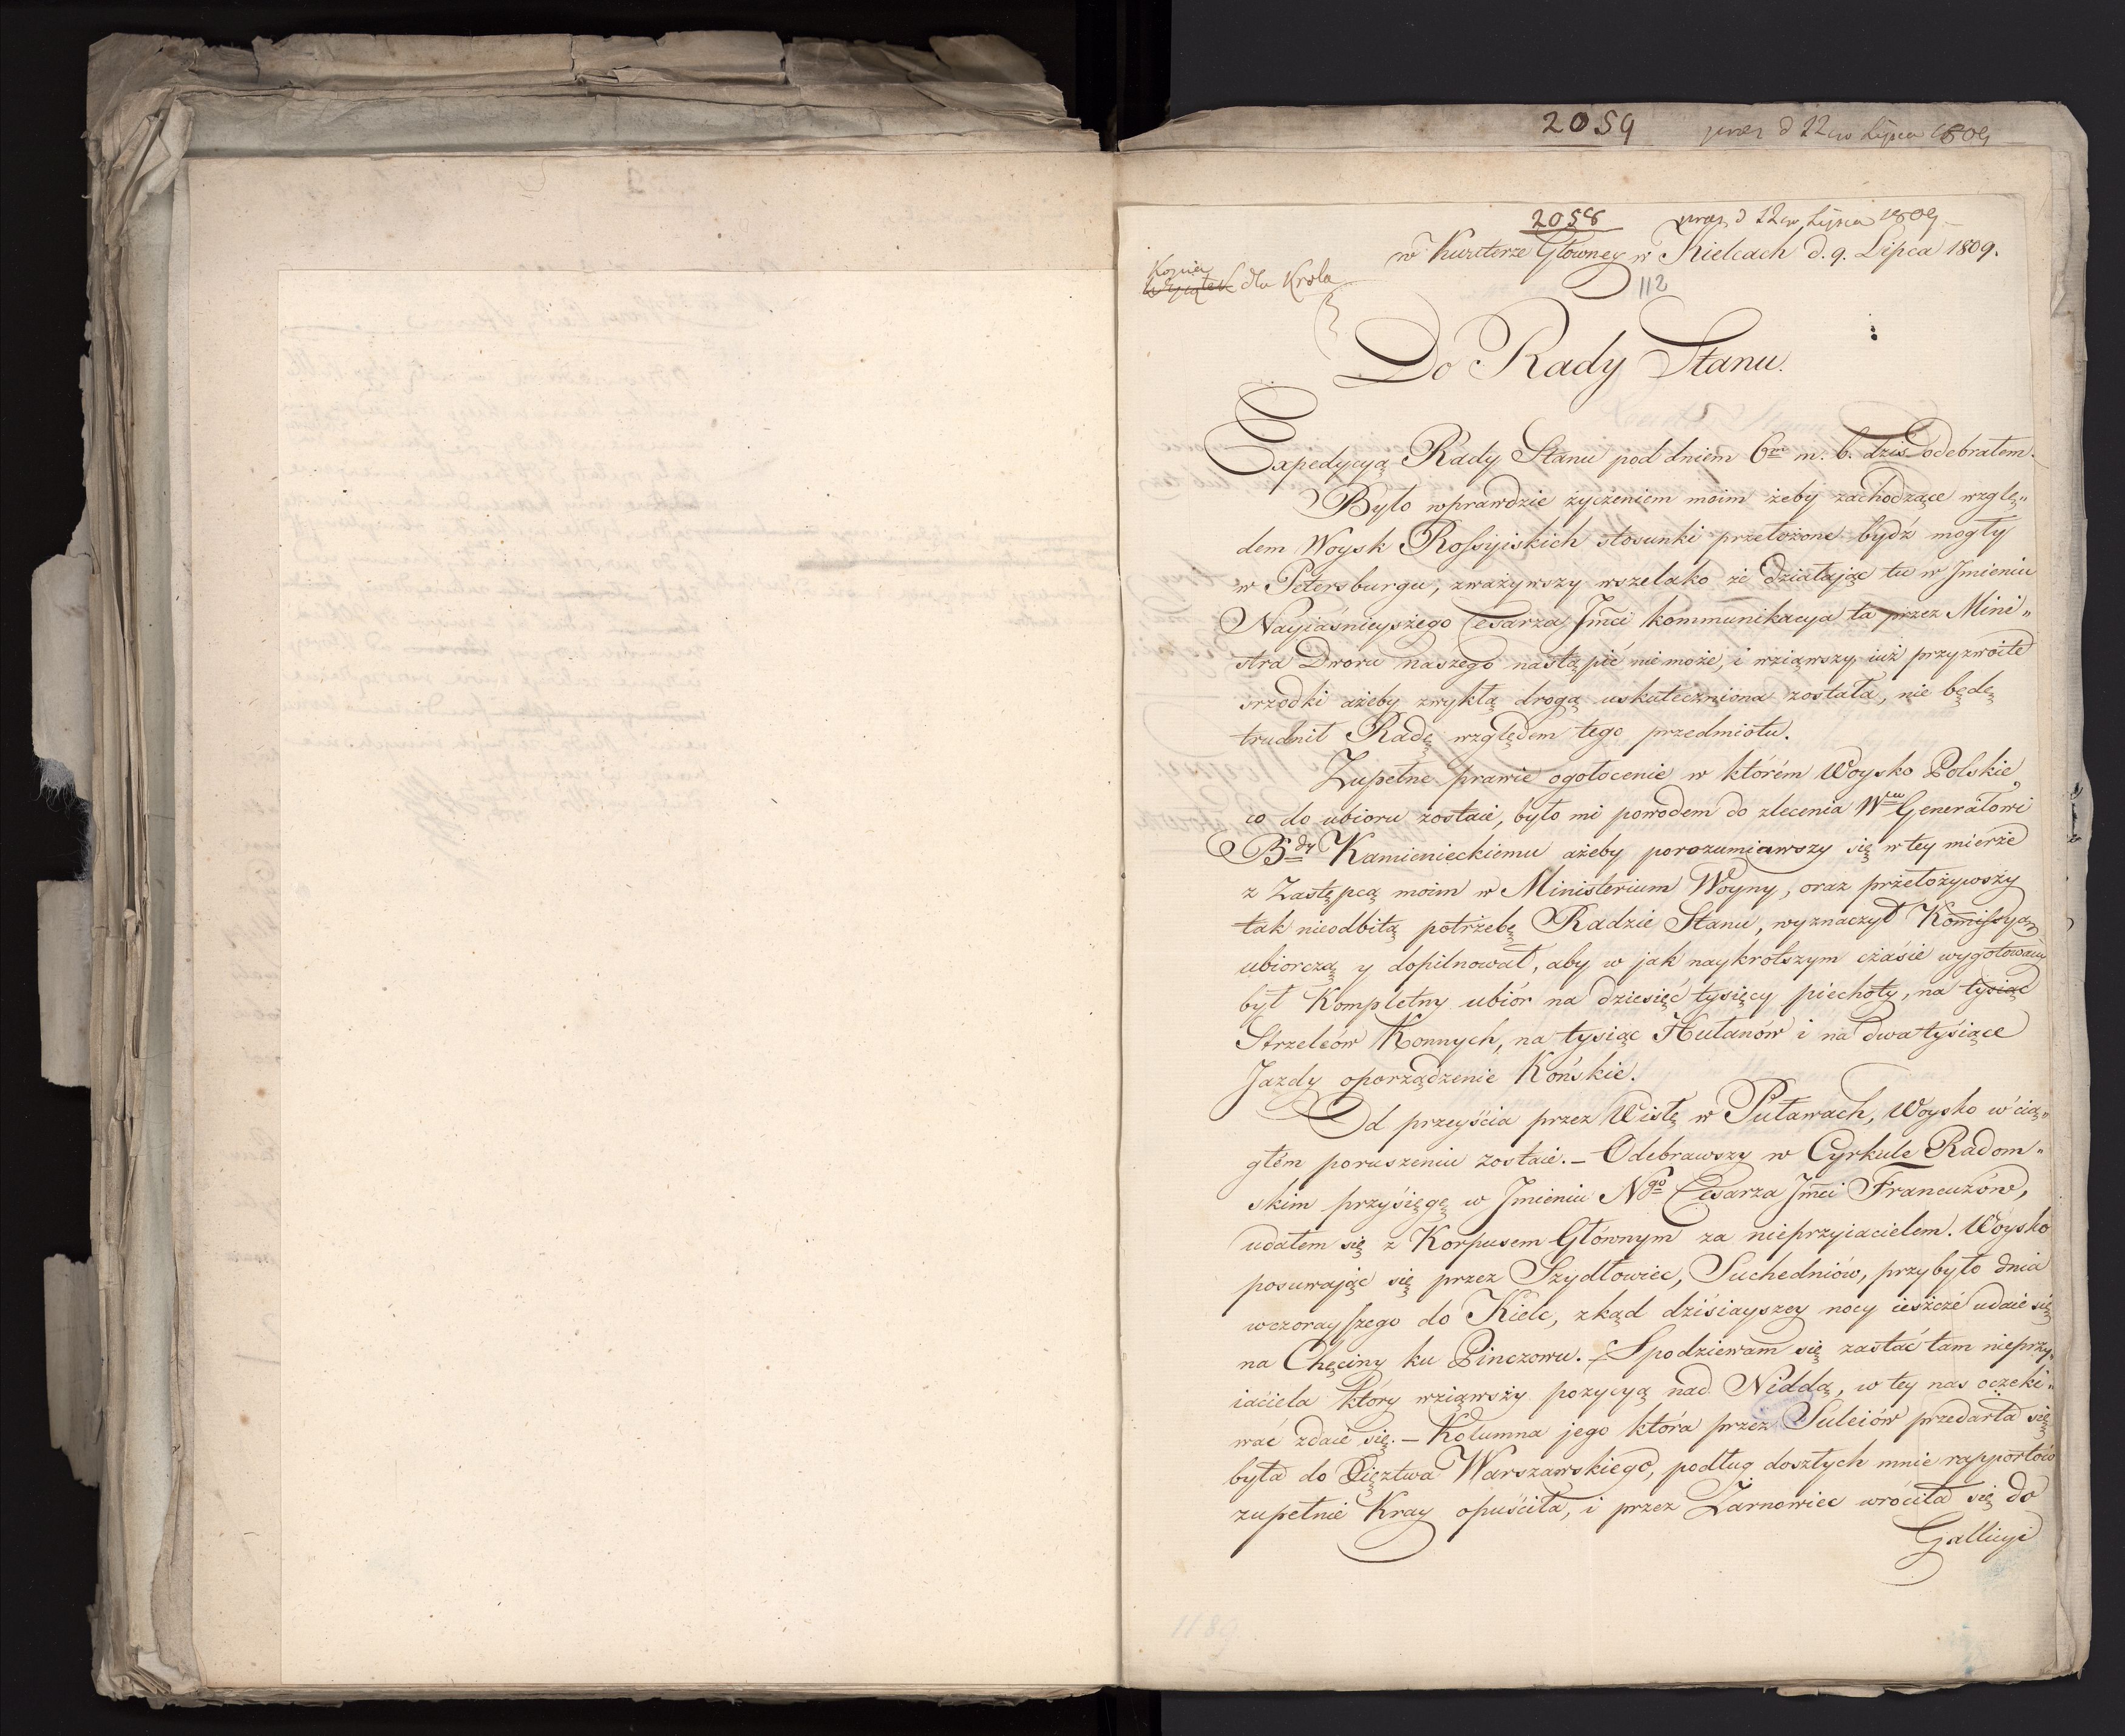 2059 d 12go Lipca 1809
2058 d 12go Lipca 1809
w Kwaterze Głowney w Kielcach d. 9. Lipca 1809.
Kopia
Wyciątek dla Krola
112
Do Rady Stanu.
Expedycyą Rady Stanu pod dniem 6m m. b. dziś odebrałem.
Było wprawdzie życzeniem moim żeby zachodzące wzglę„
dem Woysk Rossyiskich stosunki przełożone bydź mogły
w Petersburgu, zważywszy wszelako że działając tu w Jmieniu
Nayiaśnieyszego Cesarza Jmci kommunikacya ta przez Mini„
stra Dworu naszego nastąpić nie może, i wziąwszy iuż przyzwoite
srzodki ażeby zwykłą drogą uskuteczniona została, nie będę
trudnił Radę względem tego przedmiotu.
Zupełne prawie ogołocenie w którém Woysko Polskie
co do ubioru zostaie, było mi powodem do zlecenia Wmu Generałowi
Bdy Kamienieckiemu ażeby porozumiawszy się w tey mierze
z Zastępcą moim w Ministerium Woyny, oraz przełożywszy
tak nieodbitą potrzebę Radzie Stanu, wyznaczył Komissyą
ubiorczą y dopilnował, aby w jak naykrotszym czasie wygotowany
był Kompletny ubiór na dziesięć tysięcy piechoty, na tysiąc
Strzelców Konnych, na tysiąc Hułanów i na dwa tysiące
Jazdy oporządzenie Końskie.
Od przeyścia przez Wisłę w Puławach, Woysko w cią„
głém poruszeniu zostaie. – Odebrawszy w Cyrkule Radom„
skim przysięgę w Jmieniu Ngo Cesarza Jmci Francuzów,
udałem się z Korpusem Głównym za nieprzyiacielem. Woysko
posuwając się przez Szydłowiec, Suchedniów, przybyło dnia
wczorayszego do Kielc, zkąd dzisiayszey nocy ieszcze udaie się
na Chęciny ku Pinczowu. – Spodziewam się zastać tam nieprzy„
iaciela który wziąwszy pozycyą nad Niddą, w tey nas oczeki„
wać zdaie się. – Kolumna jego która przez Suleiów przedarła się
była do Xięztwa Warszawskiego, podług doszłych mnie rapportów
zupełnie Kray opuściła, i przez Zarnowiec wróciła się do
Gallicyi
1189